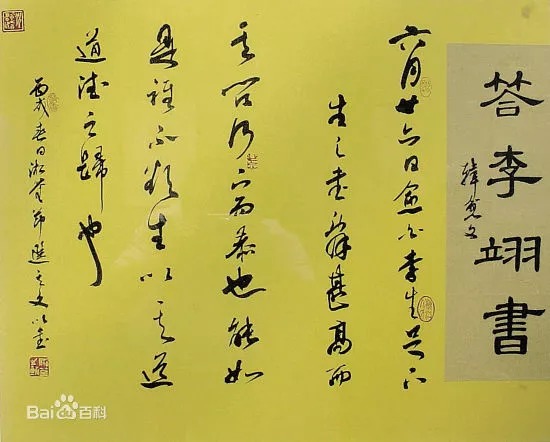 荅李翊書
韓愈文
六月廿六日愈白李生足下
生之書辭甚高而
其問何下而恭也能如
是誰不欲生以其道
道德之歸也
丙戌春日節選之文以書
Bai百科